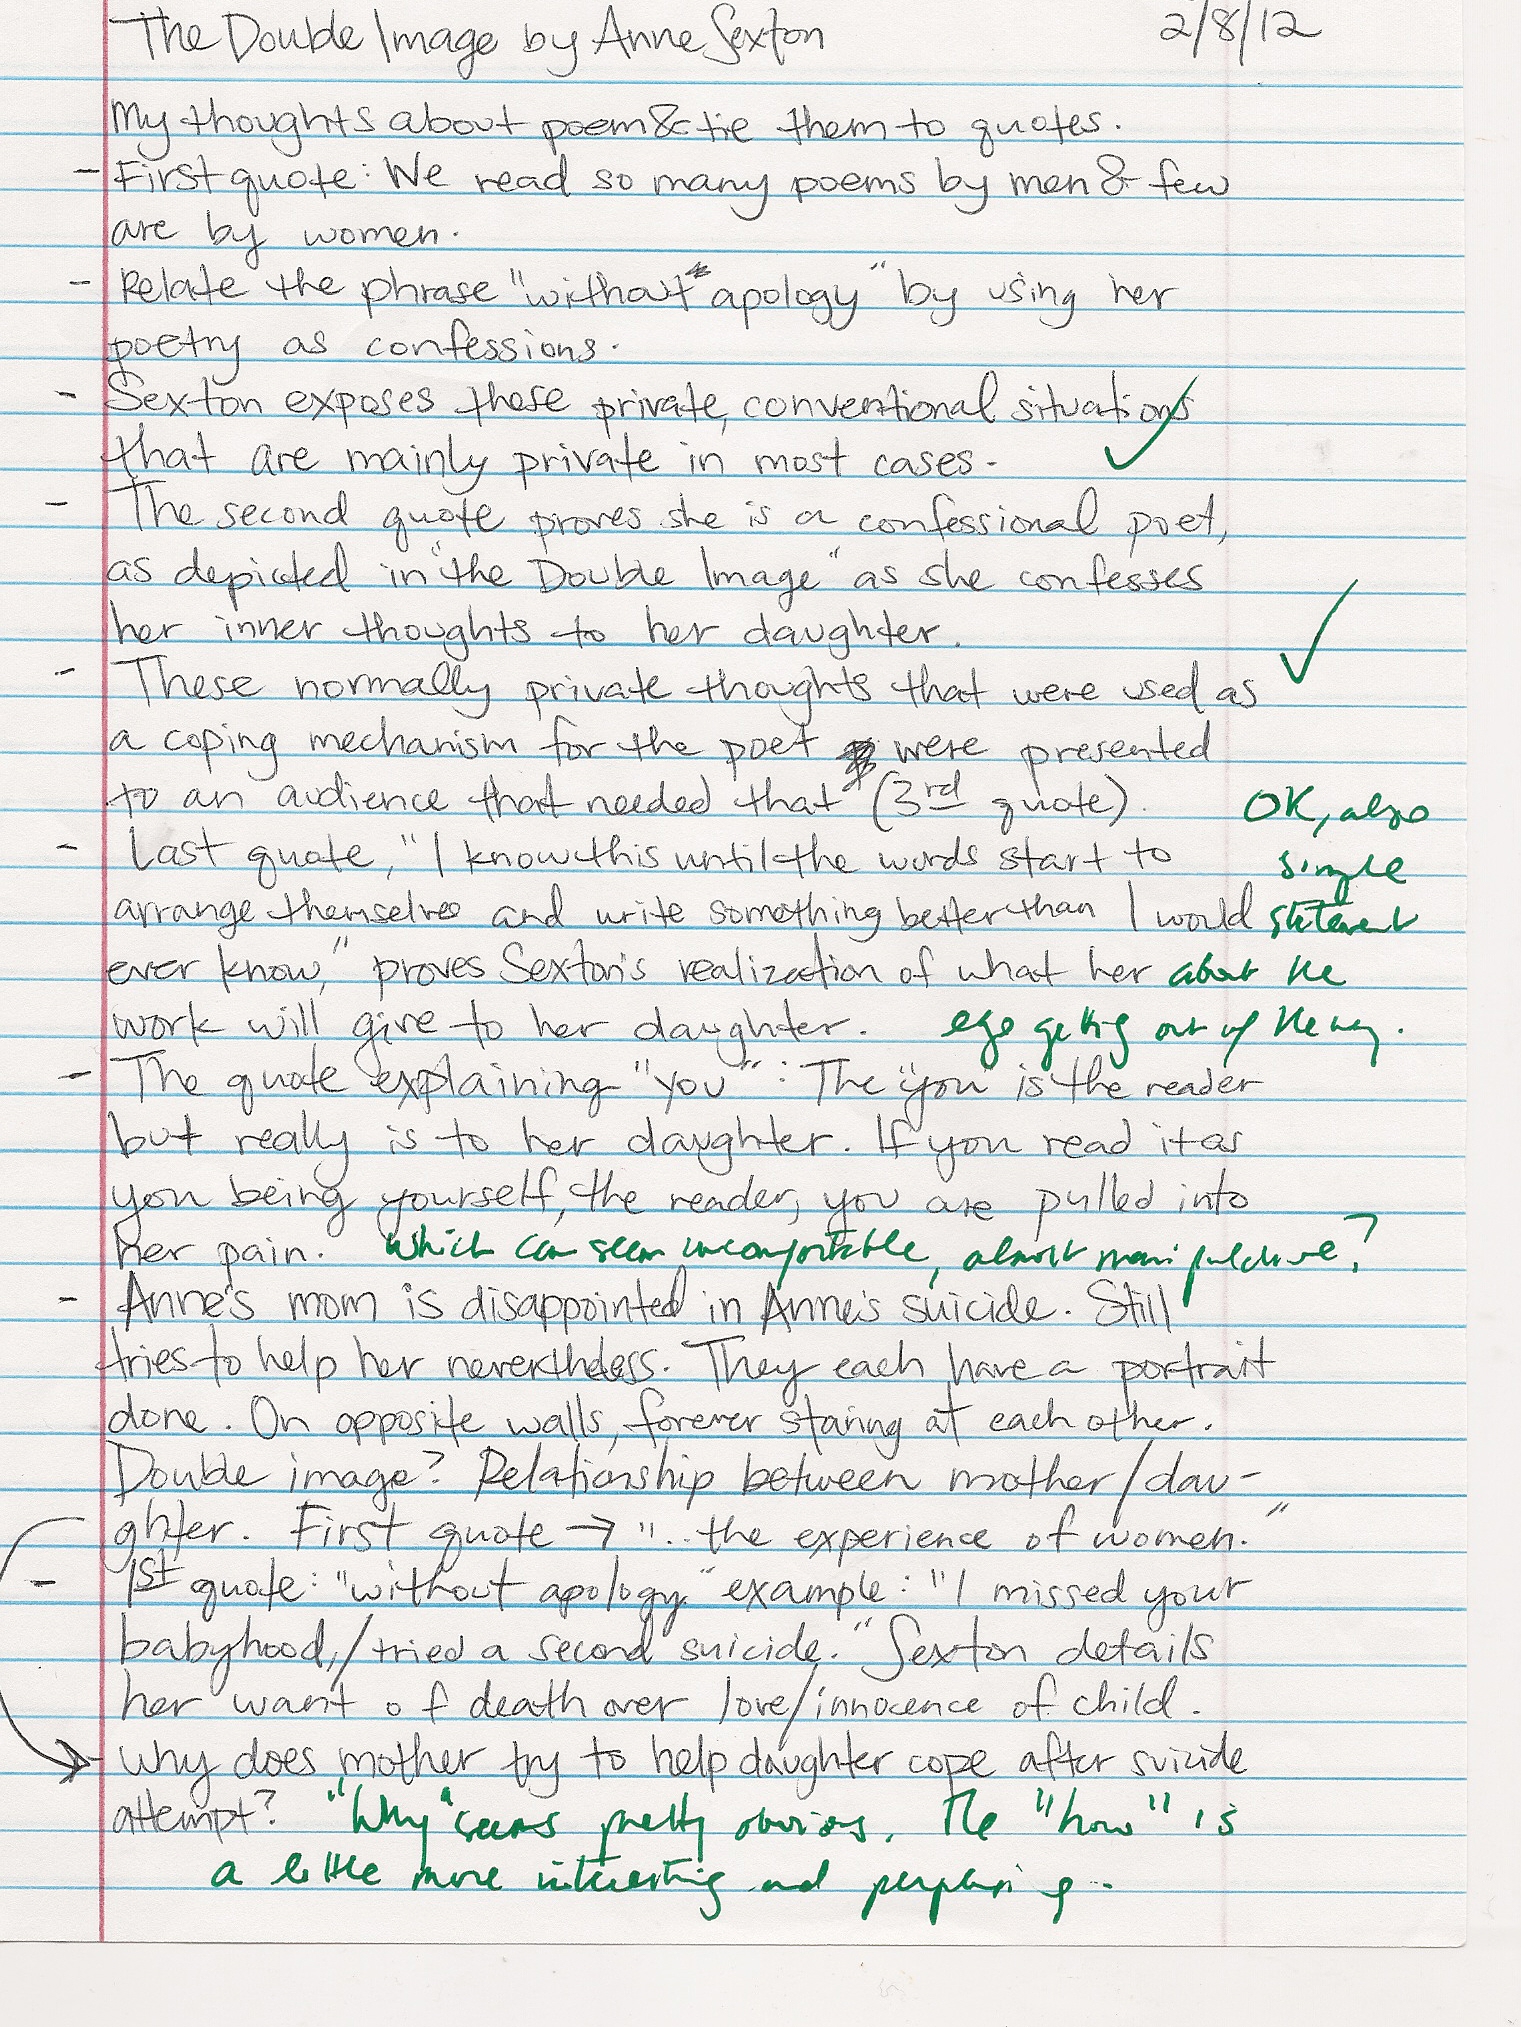 The Double Image by Anne Sexton 2/8/12
My thoughts about poem & tie them to quotes.
- First quote: We read so many poems by men & few
are by women.
- Relate the phrase "without apology" by using her
poetry as confessions.
- Sexton exposes these private, conventional situations
that are mainly private in most cases.
- The second quote proves she is a confessional poet,
as depicted in "the Double Image" as she confesses
her inner thoughts to her daughter.
- These normally private thoughts that were used as
a coping mechanism for the poet were presented
to an audience that needed that (3rd quote).
- Last quote, "I know this until the words start to
arrange themselves and write something better than I would
ever know," proves Sexton's realization of what her
work will give to her daughter.
OK, also
simple
statement
about the
ego getting out of the way.
- The quote explaining "you": The "you" is the reader
but really is to her daughter. If you read it as
you being yourself, the reader, you are pulled into
her pain. which can seem uncomfortable, almost manipulative?
- Anne's mom is disappointed in Anne's suicide. Still
tries to help her nevertheless. They each have a portrait
done. On opposite walls, forever staring at each other.
Double image? Relationship between mother/dau-
ghter. First quote → "...the experience of women."
- 1st quote: "without apology" example: "I missed your
babyhood,/tried a second suicide." Sexton details
her want of death over love/innocence of child.
- Why does mother try to help daughter cope after suicide
attempt? "Why" seems pretty obvious. The "how" is
a little more interesting and perplexing.